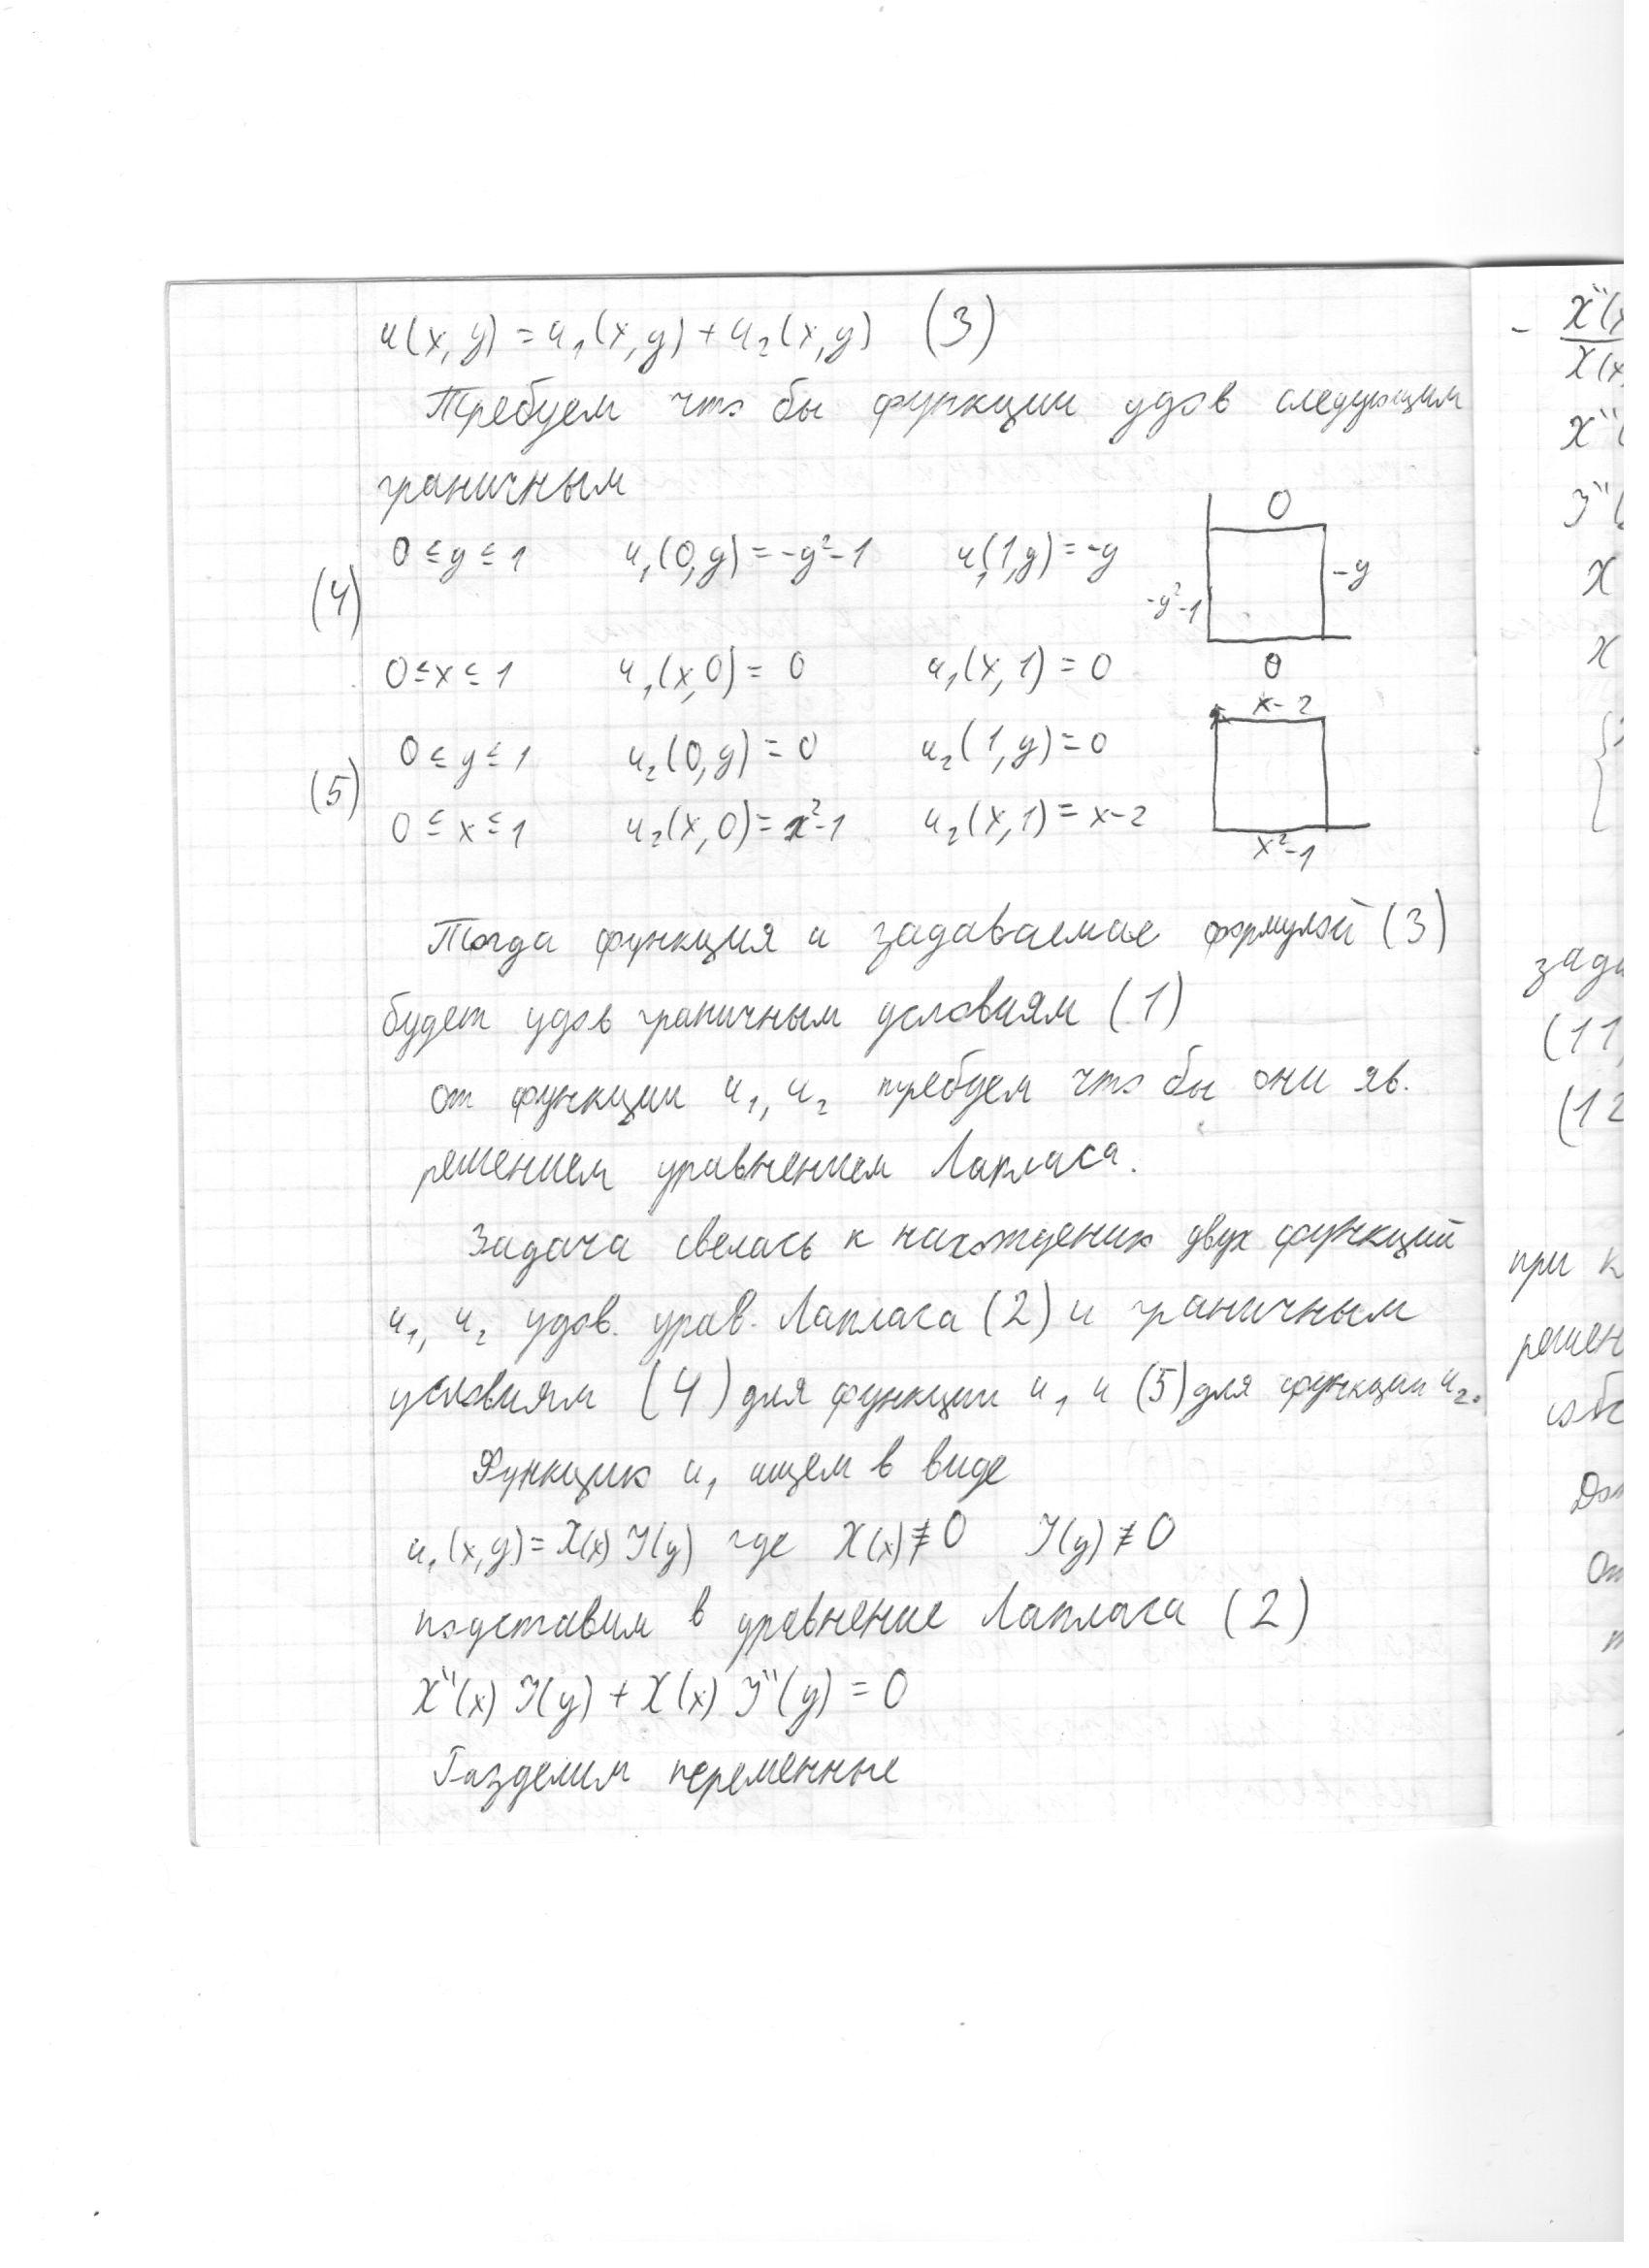 u(x, y) = u₁(x, y) + u₂(x, y) (3)
Требуем что бы функции удов следующим
граничным
0 ≤ y ≤ 1 u₁(0, y) = -y²-1 u₁(1, y) = -y
(4)
0 ≤ x ≤ 1 u₁(x, 0) = 0 u₁(x, 1) = 0
0
-y
-y²-1
0
0 ≤ y ≤ 1 u₂(0, y) = 0 u₂(1, y) = 0
(5)
0 ≤ x ≤ 1 u₂(x, 0) = x²-1 u₂(x, 1) = x-2
x-2
x²-1
Тогда функция u задаваемая формулой (3)
будет удов граничным условиям (1)
от функции u₁, u₂ требуем что бы они яв.
решением уравнением Лапласа.
Задача свелась к нахождению двух функций
u₁, u₂ удов. урав. Лапласа (2) и граничным
условиям (4) для функции u₁ и (5) для функции u₂.
Функцию u₁ ищем в виде
u₁(x, y) = X(x) Y(y) где X(x) ≢ 0 Y(y) ≢ 0
подставим в уравнение Лапласа (2)
X"(x) Y(y) + X(x) Y"(y) = 0
Разделим переменные
- X"(x
X(x
X"(
Y"(
X
X
{
зада
(11,
(12
при к
решен